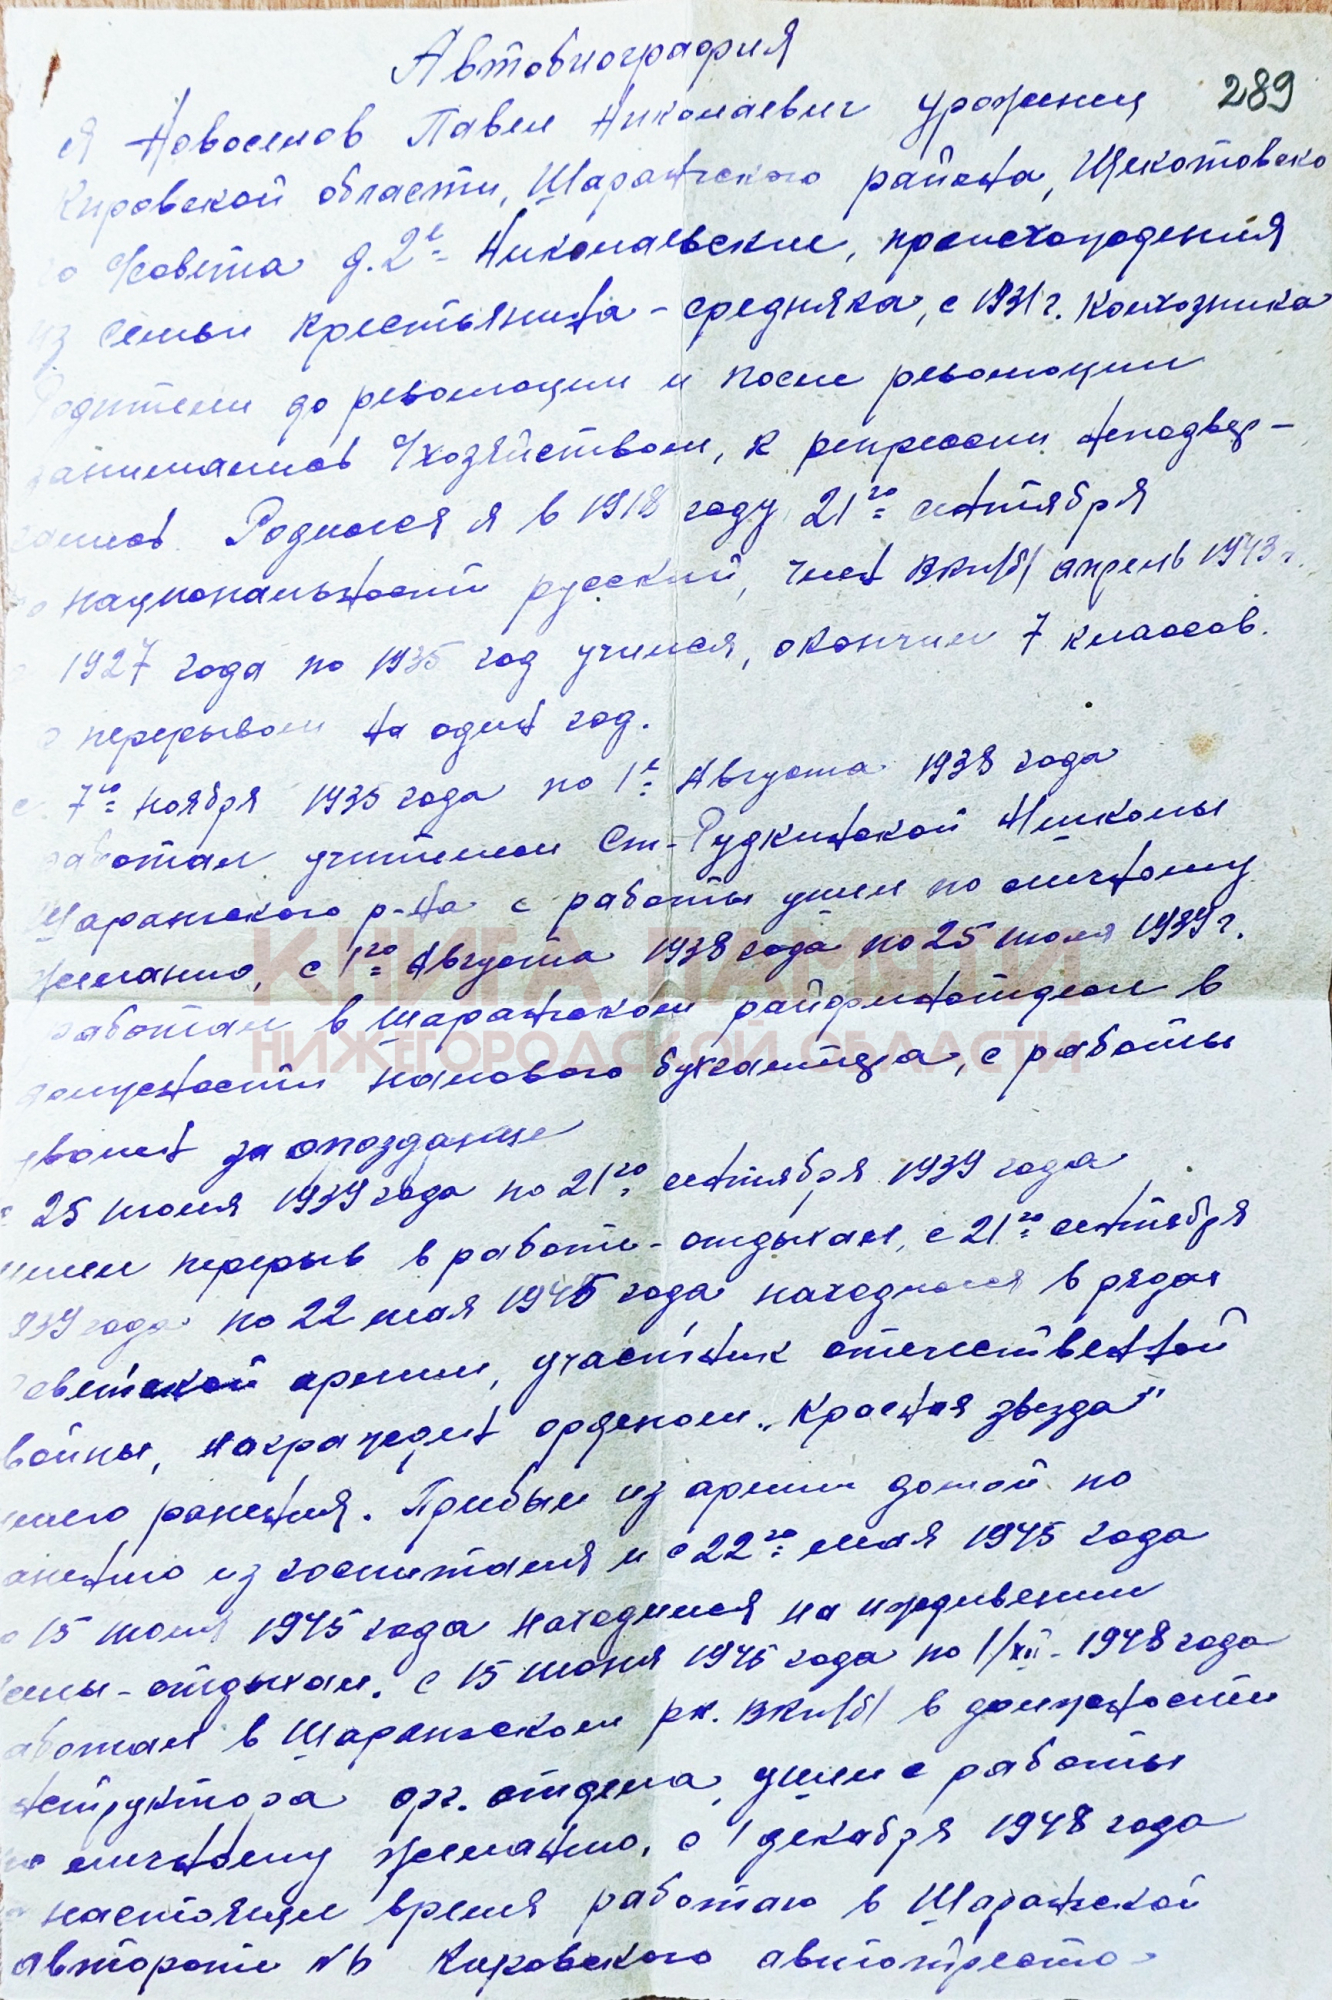 Автобиография
289
Я Новоселов Павел Николаевич урожениц
Кировской области, Шарангского района, Щекотовско
го с/совета д. 2е Николаевские, происхождения
из семьи крестьянина - средняка, с 1931 г. колхозника
Родители до революции и после революции
занимались с/хозяйством, к репрессии неподвер-
гались. Родился я в 1918 году 21го сентября
по национальности русский, член ВКП/б/ апрель 1943 г.
с 1927 года по 1935 год учился, окончил 7 классов.
с перерывом на один год.
с 7го ноября 1935 года по 1е Августа 1938 года
работал учителем Ст-Рудкинской Н.школы
Шарангского р-на с работы ушел по личному
желанию, с 1го Августа 1938 года по 25 июля 1939 г.
работал в Шарангском райфинотделе в
должности налового бухгалтера, с работы
уволен за опоздание
с 25 июля 1939 года по 21го сентября 1939 года
имел перерыв в работе - отдыхал, с 21го сентября
1939 года по 22 мая 1945 года находился в рядах
Советской армии, участник отечественной
войны, награжден орденом „Красная звезда"
имею ранения. Прибыл из армии домой по
ранению из госпиталя и с 22го мая 1945 года
по 15 июня 1945 года находился на иждивении
жены - отдыхал. с 15 июня 1945 года по 1/XII - 1948 года
работал в Шарангском рк. ВКП/б/ в должности
инструктора орг. отдела, ушел с работы
по личному желанию, с 1 декабря 1948 года
настоящее время работаю в Шарангской
автороте №6 Кировского автотреста
КНИГА ПАМЯТИ
НИЖЕГОРОДСКОЙ ОБЛАСТИ